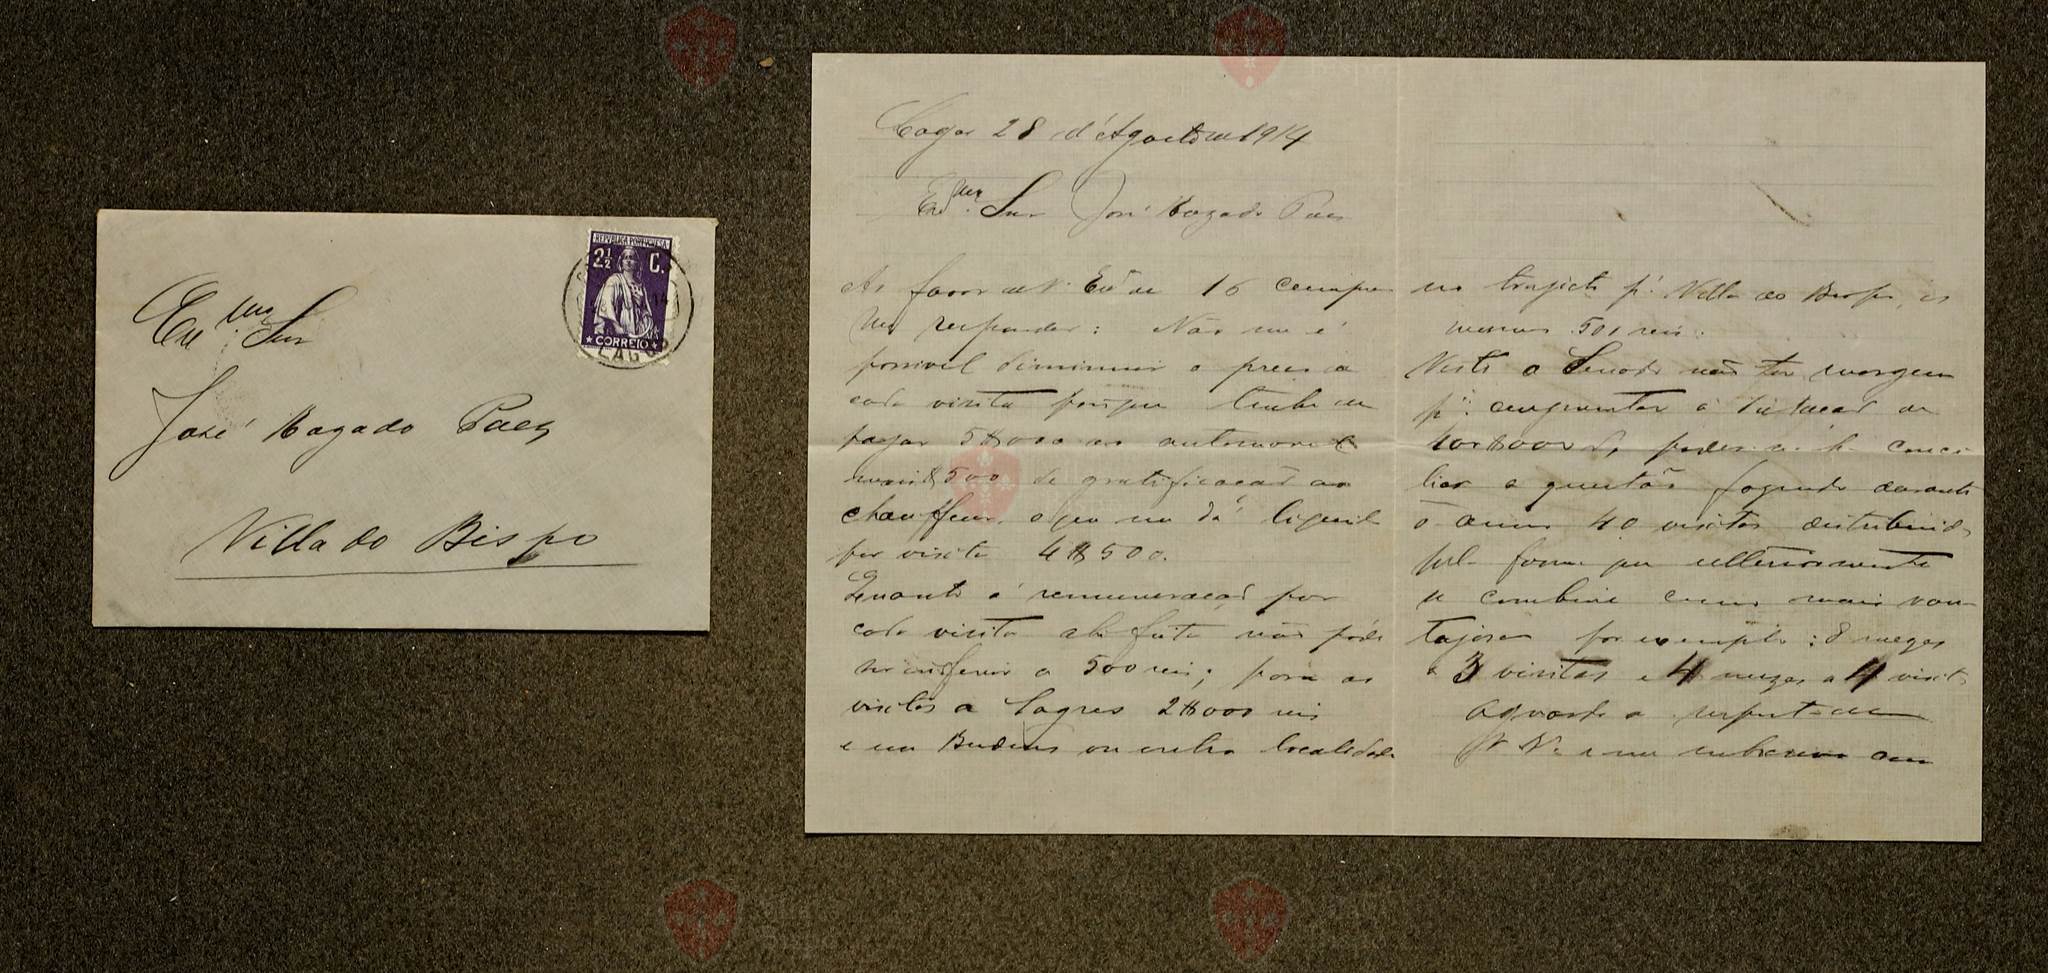 Exmo Snr
José Magado Paes
Villa do Bispo
REPUBLICA PORTUGUESA
2½ C.
CORREIO
LAGOS
Lagos 28 d'Agosto de 1914
Exmo Snr José Magado Paes
Ao favor de V. Exa de 16 cumpre
me responder: Não me é
possivel diminuir o preço de
cada visita porque tenho de
pagar 5$000 ao automovel
mais $500 de gratificação ao
chauffeur, o que me dá liquido
por visita 4$500.
Quanto á remuneração por
cada visita ahi feita não póde
ser inferior a 500 reis; para as
visitas a Sagres 2$000 reis
e em Budens ou outra localidade
no trajecto pª Villa do Bispo, os
mesmos 500 reis.
Visto o Senado não ter margem
pª augmentar a dotação de
400$000 rs, poder-se-ha conci
liar a questão fazendo durante
o anno 40 visitas distribuidas
pela forma que ulteriormente
se combine como mais van
tajosa por exemplo: 8 mezes
a 3 visitas e 4 mezes a 4 visitas
Aguardo a resposta de
V. Exa e me subscrevo com